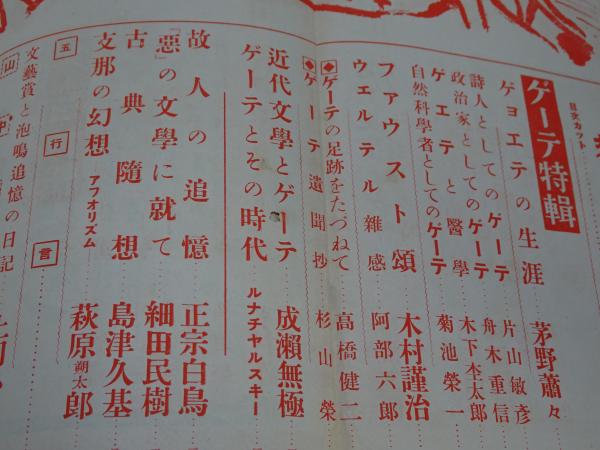 目次カット
ゲーテ特輯
ゲョエテの生涯 茅野蕭々
詩人としてのゲーテ 片山敏彦
政治家としてのゲーテ 舟木重信
ゲエテと醫學 木下杢太郎
自然科學者としてのゲーテ 菊池榮一
ファウスト頌 木村謹治
ウェルテル雜感 阿部六郎
◆ゲーテの足跡をたづねて 高橋健二
◆ゲーテ遺聞抄 杉山榮
近代文學とゲーテ 成瀨無極
ゲーテとその時代 ルナチャルスキー
故人の追憶 正宗白鳥
『惡』の文學に就て 細田民樹
古典隨想 島津久基
支那の幻想 アフォリズム 萩原朔太郎
五行言
文藝賞と泡鳴追憶の日記
山